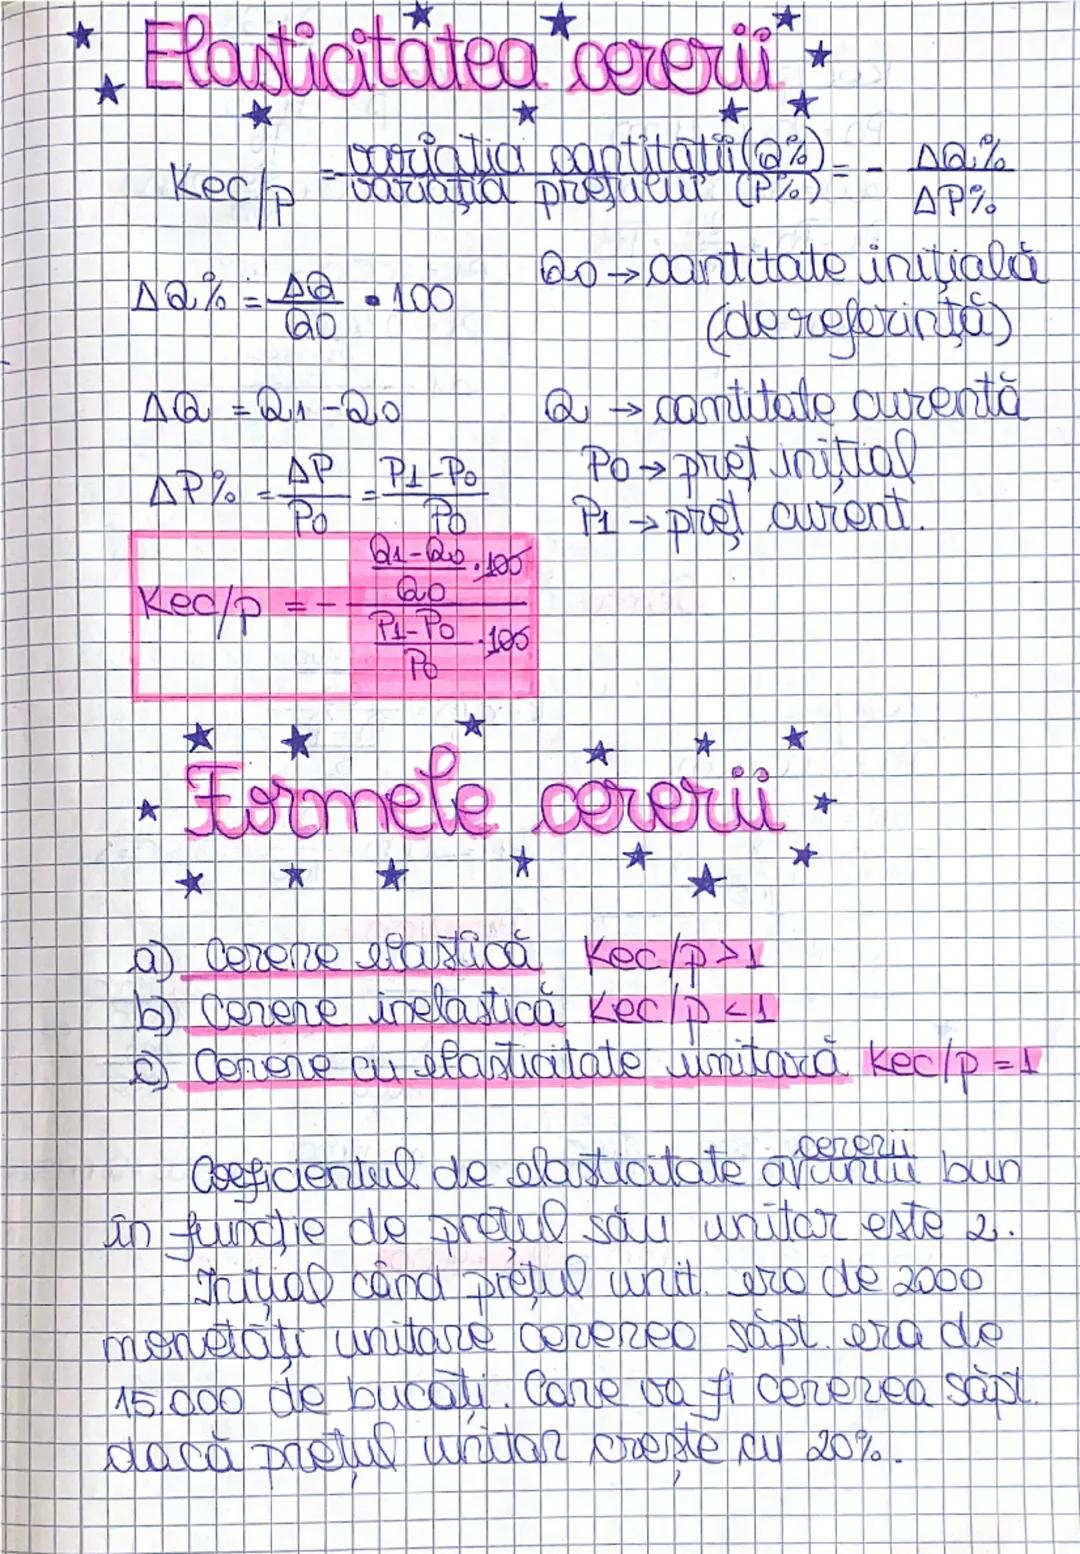 Elasticitatea cererii
Kec/p = variația cantității (Q%) / variația prețului (P%) = - ΔQ% / ΔP%
ΔQ% = ΔQ / Q0 • 100
Q0 → cantitate inițială
(de referință)
ΔQ = Q1 - Q0
Q → cantitate curentă
ΔP% = ΔP / P0 = P1-P0 / P0
P0 → preț inițial
P1 → preț curent.
Kec/p = - Q1-Q0 / Q0 · 100 / P1-P0 / P0 · 100
Formele cererii
a) Cerere elastică Kec/p > 1
b) Cerere inelastică Kec/p < 1
c) Cerere cu elasticitate unitară Kec/p = 1
cererii
Coeficientul de elasticitate a unui bun
în funcție de prețul său unitar este 2.
Inițial când prețul unit. era de 2000
monetăți unitare cererea săpt. era de
15.000 de bucăți. Care va fi cererea săpt.
dacă prețul unitar crește cu 20%.